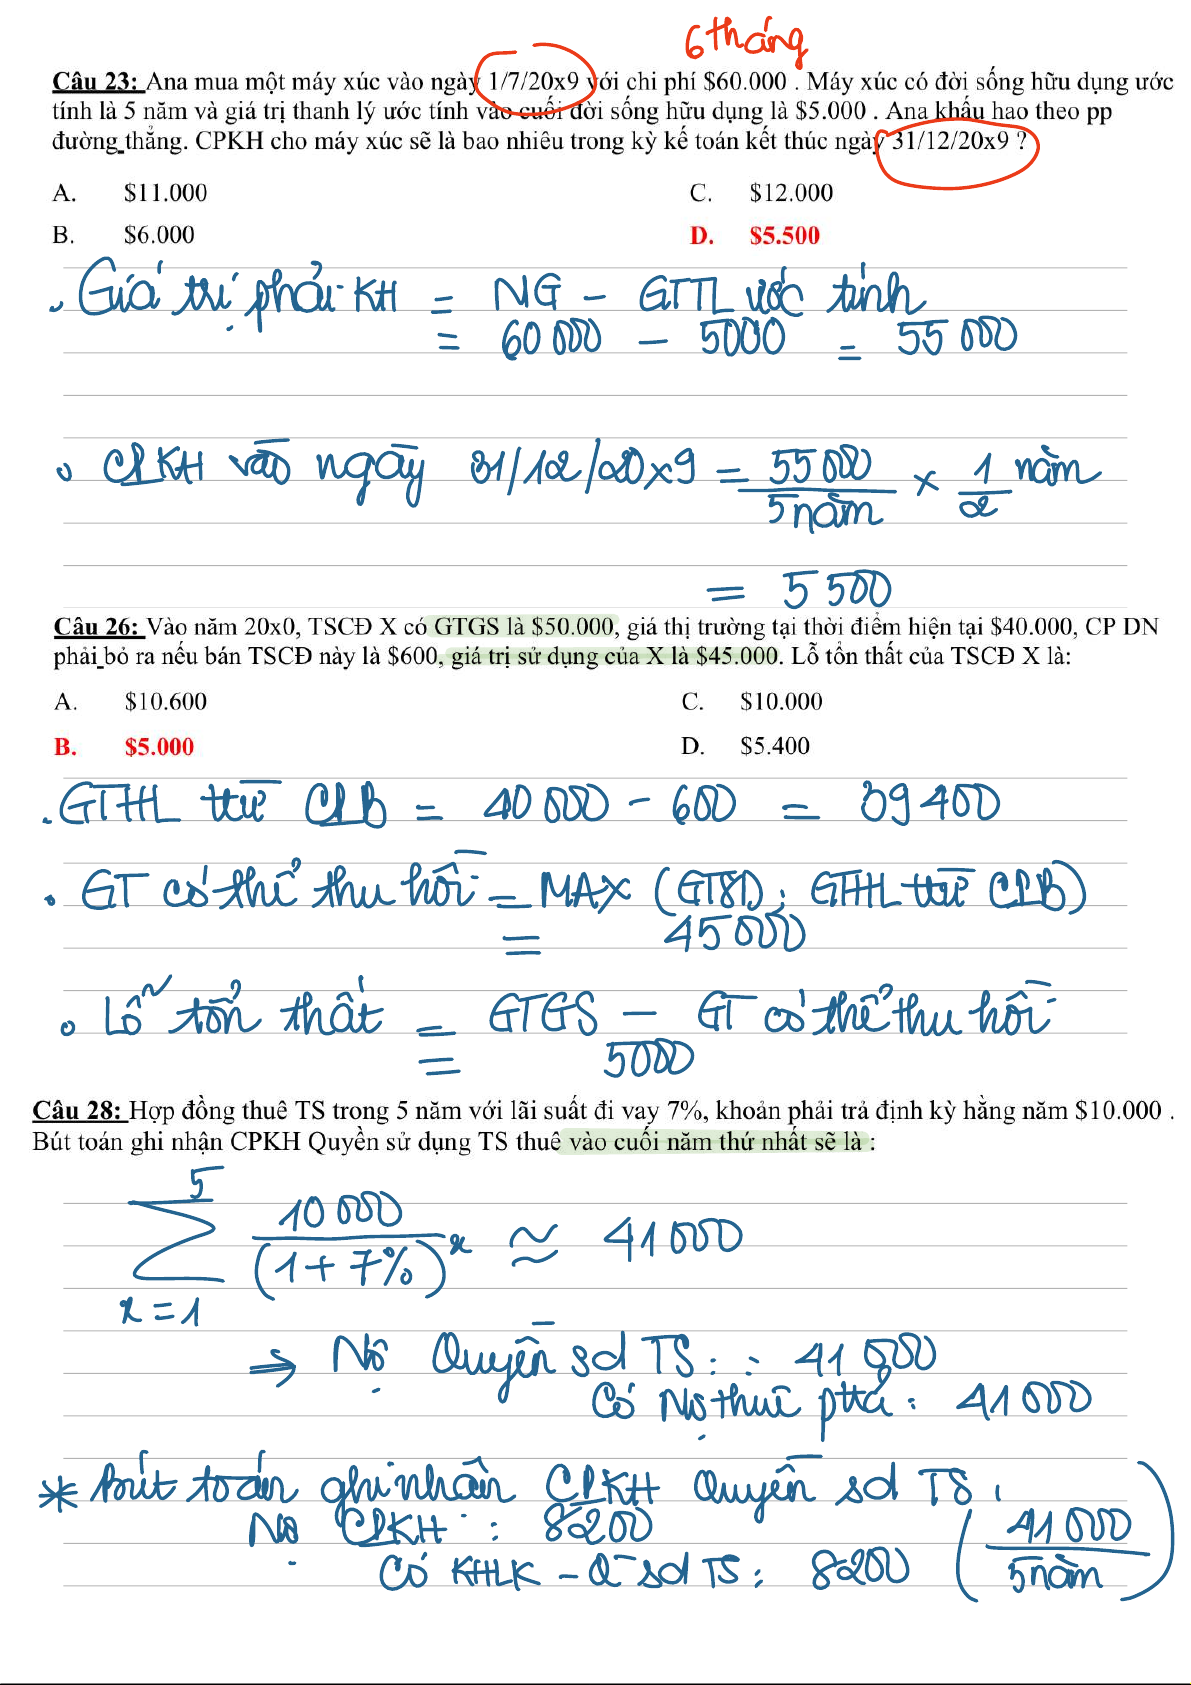 6 tháng
Câu 23: Ana mua một máy xúc vào ngày 1/7/20x9 với chi phí $60.000 . Máy xúc có đời sống hữu dụng ước
tính là 5 năm và giá trị thanh lý ước tính vào cuối đời sống hữu dụng là $5.000 . Ana khấu hao theo pp
đường thẳng. CPKH cho máy xúc sẽ là bao nhiêu trong kỳ kế toán kết thúc ngày 31/12/20x9 ?
A. $11.000 C. $12.000
B. $6.000 D. $5.500
Giá trị phải KH = NG - GTTL ước tính
= 60 000 - 5000 = 55 000
CPKH vào ngày 31/12/20x9 = 55 000 / 5 năm × 1/2 năm
= 5 500
Câu 26: Vào năm 20x0, TSCĐ X có GTGS là $50.000, giá thị trường tại thời điểm hiện tại $40.000, CP DN
phải bỏ ra nếu bán TSCĐ này là $600, giá trị sử dụng của X là $45.000. Lỗ tổn thất của TSCĐ X là:
A. $10.600 C. $10.000
B. $5.000 D. $5.400
GTHL trừ CPB = 40 000 - 600 = 39 400
GT có thể thu hồi = MAX (GTSD ; GTHL trừ CPB)
= 45 000
Lỗ tổn thất = GTGS - GT có thể thu hồi
= 5000
Câu 28: Hợp đồng thuê TS trong 5 năm với lãi suất đi vay 7%, khoản phải trả định kỳ hằng năm $10.000 .
Bút toán ghi nhận CPKH Quyền sử dụng TS thuê vào cuối năm thứ nhất sẽ là :
5
∑ 10 000 / (1 + 7%)^x ≈ 41 000
x = 1
⇒ Nợ Quyền sd TS : : 41 000
Có Nợ thuê ptrả : 41 000
* Bút toán ghi nhận CPKH Quyền sd TS :
Nợ CPKH : 8200
Có KHLK - Q sd TS : 8200 (41 000 / 5 năm)